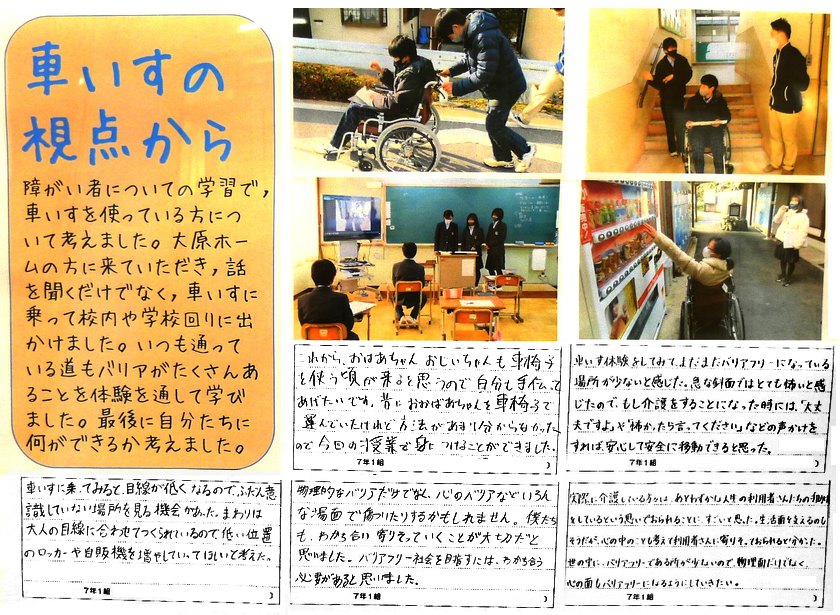 車いすの
視点から
障がい者についての学習で，
車いすを使っている方につ
いて考えました。大原ホー
ムの方に来ていただき，話
を聞くだけでなく，車いすに
乗って校内や学校回りに出
かけました。いつも通って
いる道もバリアがたくさんあ
ることを体験を通して学び
ました。最後に自分たちに
何ができるか考えました。
これから、おばあちゃん おじいちゃんも車椅子
を使う頃が来ると思うので自分も手伝って
あげたいです。昔におおばあちゃんを車椅子で
運んでいたけれど方法があまり分からなかった
ので今回の授業で身につけることができました。
7年1組 )
車いす体験をしてみて、まだまだバリアフリーになっている
場所が少ないと感じた。急な斜面ではとても怖いと感
じたので、もし介護をすることになった時には、「大丈
夫ですよ」や「怖かったら言ってください」などの声かけを
すれば、安心して安全に移動できると思った。
7年1組 )
車いすに乗ってみると、目線が低くなるので、ふだん意
識していない場所を見る機会があった。まわりは
大人の目線に合わせてつくられているので低い位置
のロッカーや自販機を増やしていってほしいと考えた。
7年1組 )
物理的なバリアだけでなく、心のバリアなどいろん
な場面で傷ついたりするかもしれません。僕たち
も、わかち合い寄りそっていくことが大切だと
思いました。バリアフリー社会を目指すには、わかち合う
必要があると思いました。
7年1組 )
実際に介護している方々は、あとわずかな人生の利用者さんたちの
をしているという思いでおられることに、すごいと思った。生活面を支えるのも
そうだが、心の中のことも考えて利用者さんに寄りそっておられると分かった。
世の中に、バリアフリーである所が少ないので、物理面だけでなく、
心の面もバリアフリーになるようにしていきたい。
7年1組 )